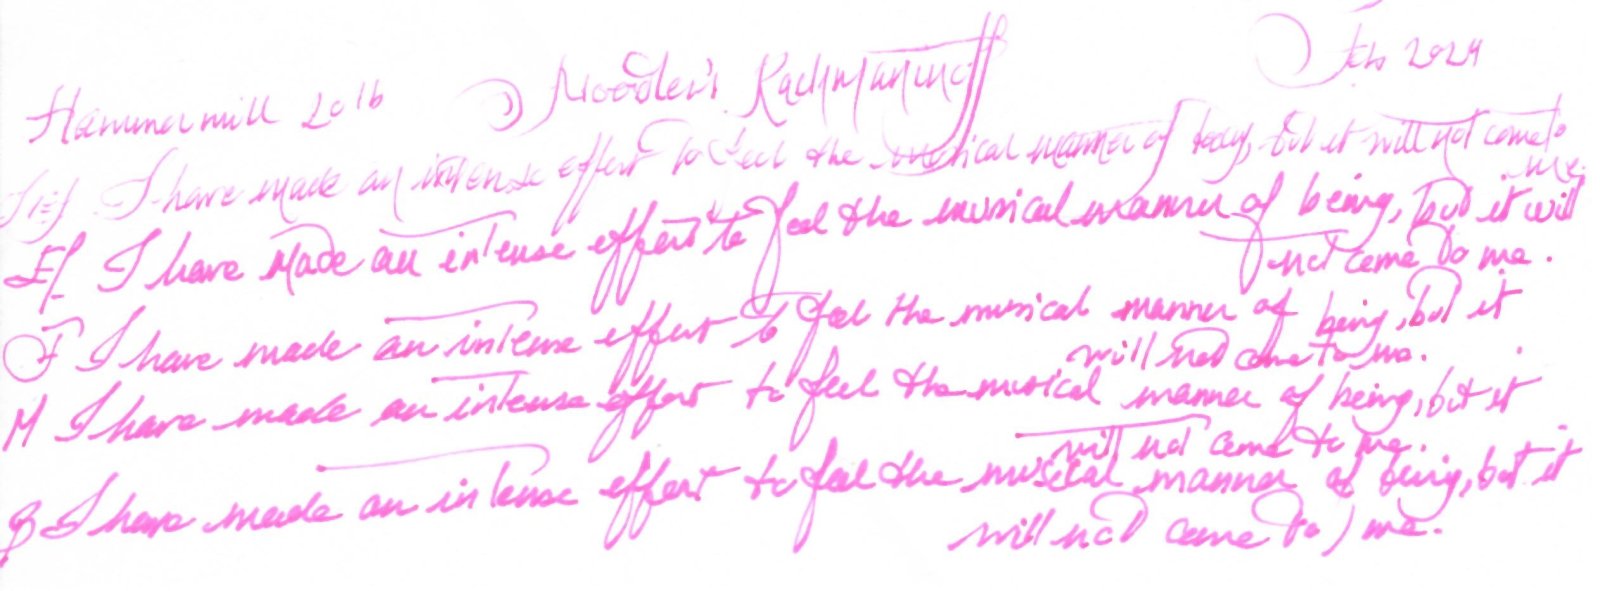 Hammermill 20lb Noodler's Rachmaninoff Feb 2024
I have made an intense effort to feel the musical manner of today, but it will not come to
me.
EF I have made an intense effort to feel the musical manner of being, but it will
not come to me.
F I have made an intense effort to feel the musical manner of being, but it
will not come to me.
M I have made an intense effort to feel the musical manner of being, but it
will not come to me.
B I have made an intense effort to feel the musical manner of being, but it
will not come to me.